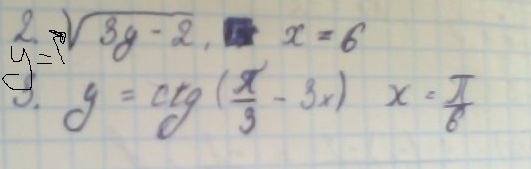 2. √(3y - 2), x = 6
y =
3. y = ctg (π/3 - 3x) x = π/6